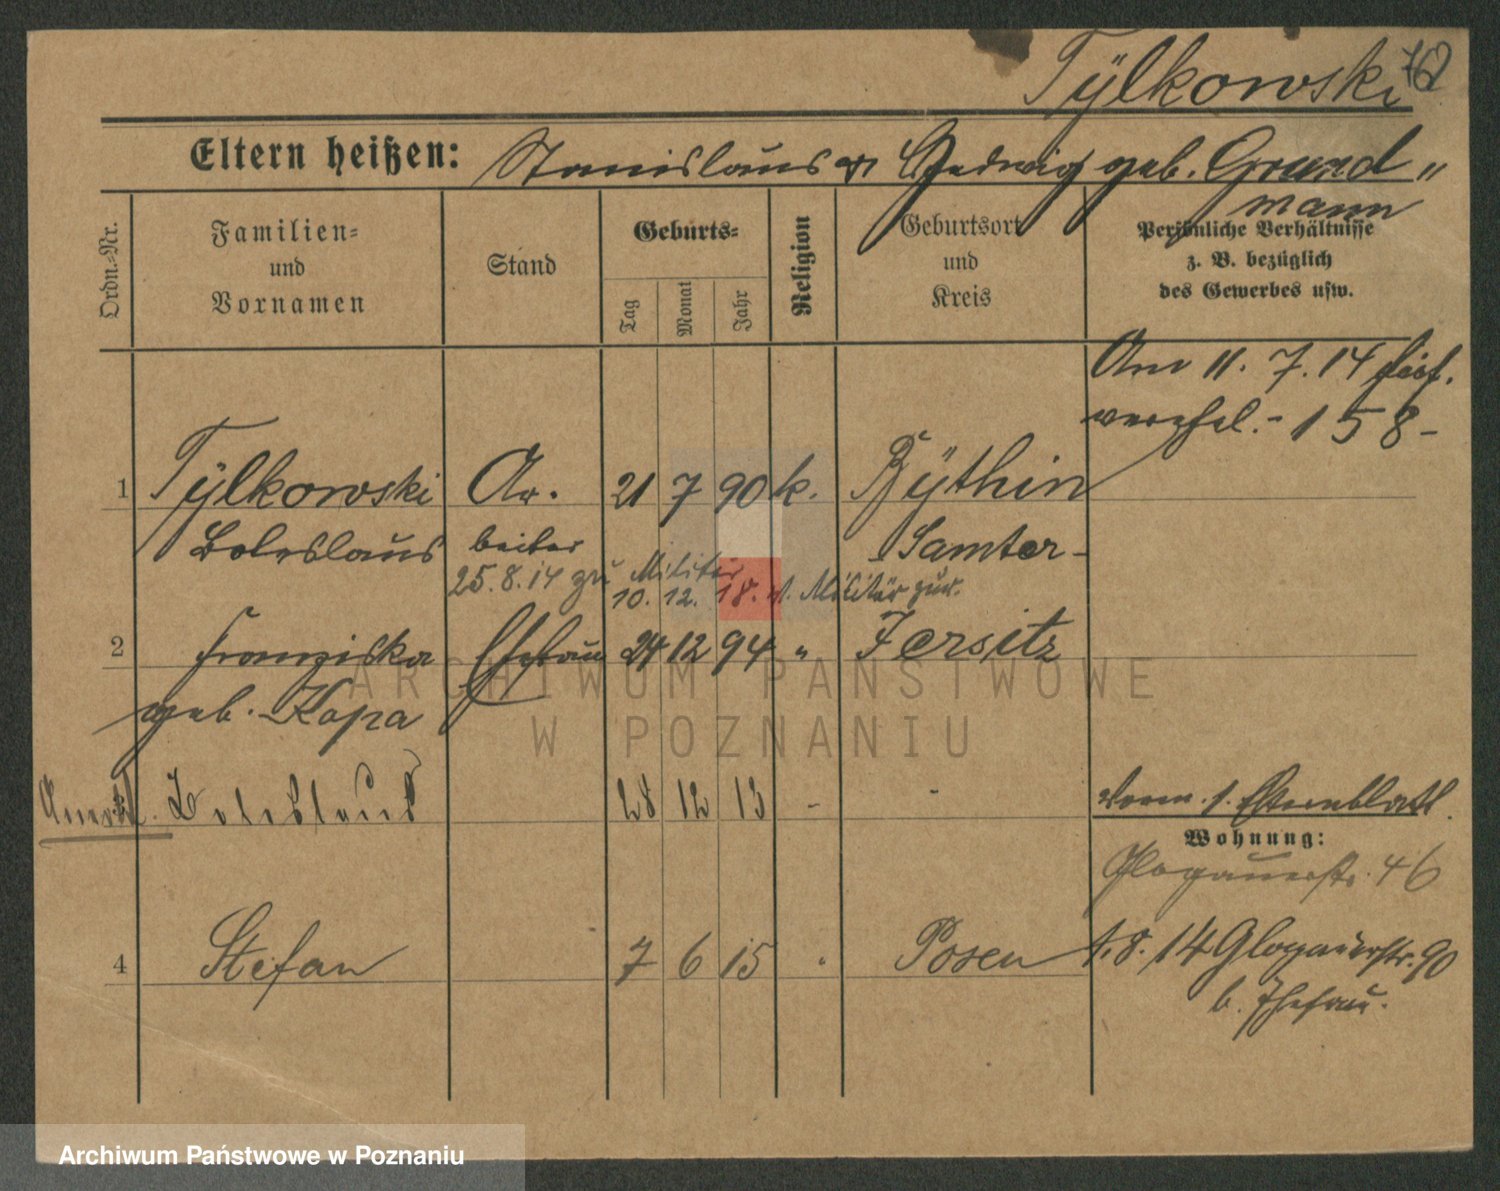 Tÿlkowski
Eltern heißen: Stanislaus u. Hedwig geb. Grund-
mann
Ordn.-Nr.
Familien-
und
Vornamen
Stand
Geburts-
Tag
Monat
Jahr
Religion
Geburtsort
und
Kreis
Persönliche Verhältnisse
z. B. bezüglich
des Gewerbes usw.
Am 11. 7. 14 hier
verehel. - 158 -
1 Tÿlkowski Ar- 21 7 90 k. Bÿthin
Boleslaus beiter Samter
25. 8. 14 zu Militär
10. 12. 18. v. Militär zur.
2 Franziska Ehefrau 24 12 94 " Jersitz
geb. Kopa
ARCHIWUM PAŃSTWOWE
W POZNANIU
Boleslaus 28 12 13 - -
Wohnung:
Glogauerstr. 46
4 Stefan 7 6 15 " Posen
1. 8. 14 Glogauerstr. 90
b. Ehefrau.
Archiwum Państwowe w Poznaniu